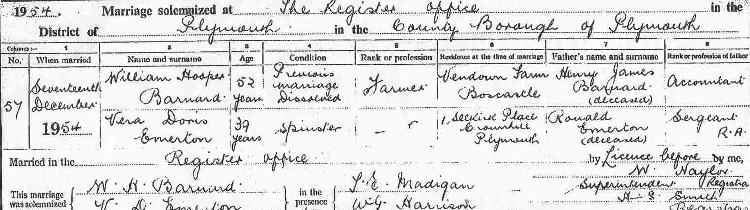 1954. Marriage solemnized at The Register office in the
District of Plymouth in the County Borough of Plymouth
Columns:— 1 2 3 4 5 6 7 8
No. When married Name and surname Age Condition Rank or profession Residence at the time of marriage Father's name and surname Rank or profession of father
57 Seventeenth December 1954 William Hooper Barnard 52 years Previous marriage Dissolved Farmer Vendown Farm Boscastle Henry James Barnard (deceased) Accountant
Vera Doris Emerton 39 years Spinster — 1, Seckirk Place Crownhill Plymouth Ronald Emerton (deceased) Sergeant R.A.
Married in the Register office by Licence before by me,
This marriage was solemnized W. H. Barnard in the presence J. E. Madigan W. Naylor Superintendent Registrar
V. D. Emerton W. G. Harrison H. S.
Registrar